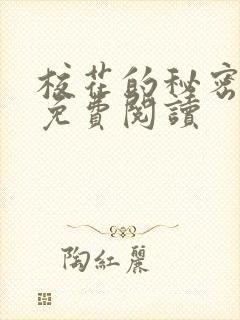 校花的秘密
免費閱讀
陶紅麗